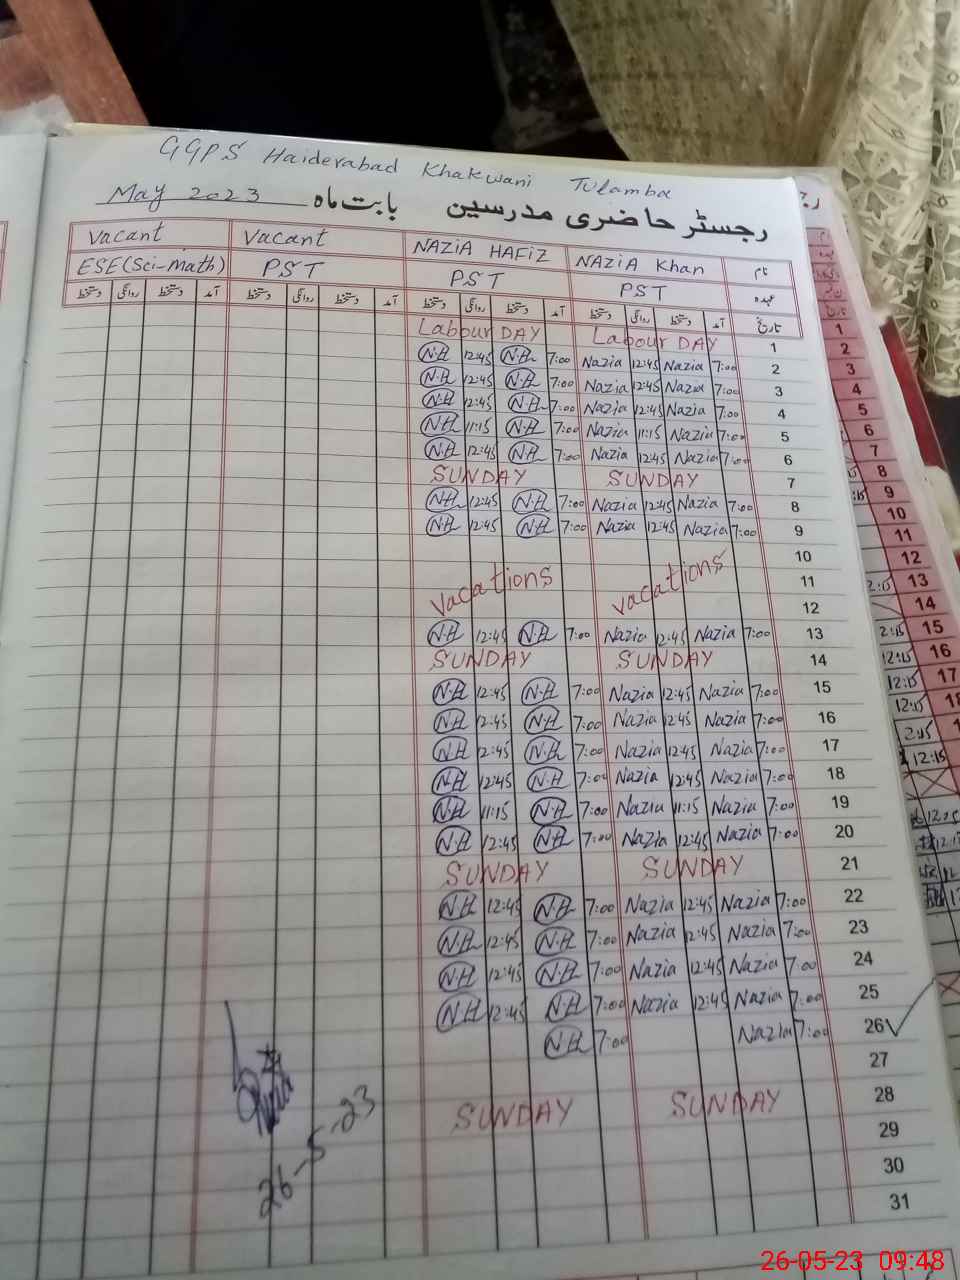 GGPS Haiderabad Khakwani Tulamba
رجسٹر حاضری مدرسین بابت ماہ May 2023
نام NAZIA Khan NAZIA HAFIZ Vacant Vacant
عہدہ PST PST PST ESE(Sci-Math)
تاریخ آمد دستخط روانگی دستخط آمد دستخط روانگی دستخط آمد دستخط روانگی دستخط آمد دستخط روانگی دستخط
1 Labour DAY Labour DAY
2 7:00 Nazia 12:45 Nazia 7:00 N.H 12:45 N.H
3 7:00 Nazia 12:45 Nazia 7:00 N.H 12:45 N.H
4 7:00 Nazia 12:45 Nazia 7:00 N.H 12:45 N.H
5 7:00 Nazia 11:15 Nazia 7:00 N.H 11:15 N.H
6 7:00 Nazia 12:45 Nazia 7:00 N.H 12:45 N.H
7 SUNDAY SUNDAY
8 7:00 Nazia 12:45 Nazia 7:00 N.H 12:45 N.H
9 7:00 Nazia 12:45 Nazia 7:00 N.H 12:45 N.H
10
11 vacations vacations
12
13 7:00 Nazia 12:45 Nazia 7:00 N.H 12:45 N.H
14 SUNDAY SUNDAY
15 7:00 Nazia 12:45 Nazia 7:00 N.H 12:45 N.H
16 7:00 Nazia 12:45 Nazia 7:00 N.H 12:45 N.H
17 7:00 Nazia 12:45 Nazia 7:00 N.H 12:45 N.H
18 7:00 Nazia 12:45 Nazia 7:00 N.H 12:45 N.H
19 7:00 Nazia 11:15 Nazia 7:00 N.H 11:15 N.H
20 7:00 Nazia 12:45 Nazia 7:00 N.H 12:45 N.H
21 SUNDAY SUNDAY
22 7:00 Nazia 12:45 Nazia 7:00 N.H 12:45 N.H
23 7:00 Nazia 12:45 Nazia 7:00 N.H 12:45 N.H
24 7:00 Nazia 12:45 Nazia 7:00 N.H 12:45 N.H
25 7:00 Nazia 12:45 Nazia 7:00 N.H 12:45 N.H
26 7:00 Nazia 7:00 N.H
27
28 SUNDAY SUNDAY
29
30
31
26-5-23
1
2
3
4
5
6
7
8
9
10
11
12
13
14
15 2:15
16 12:15
17 12:15
18 12:15
2:15
12:15
26-05-23 09:48